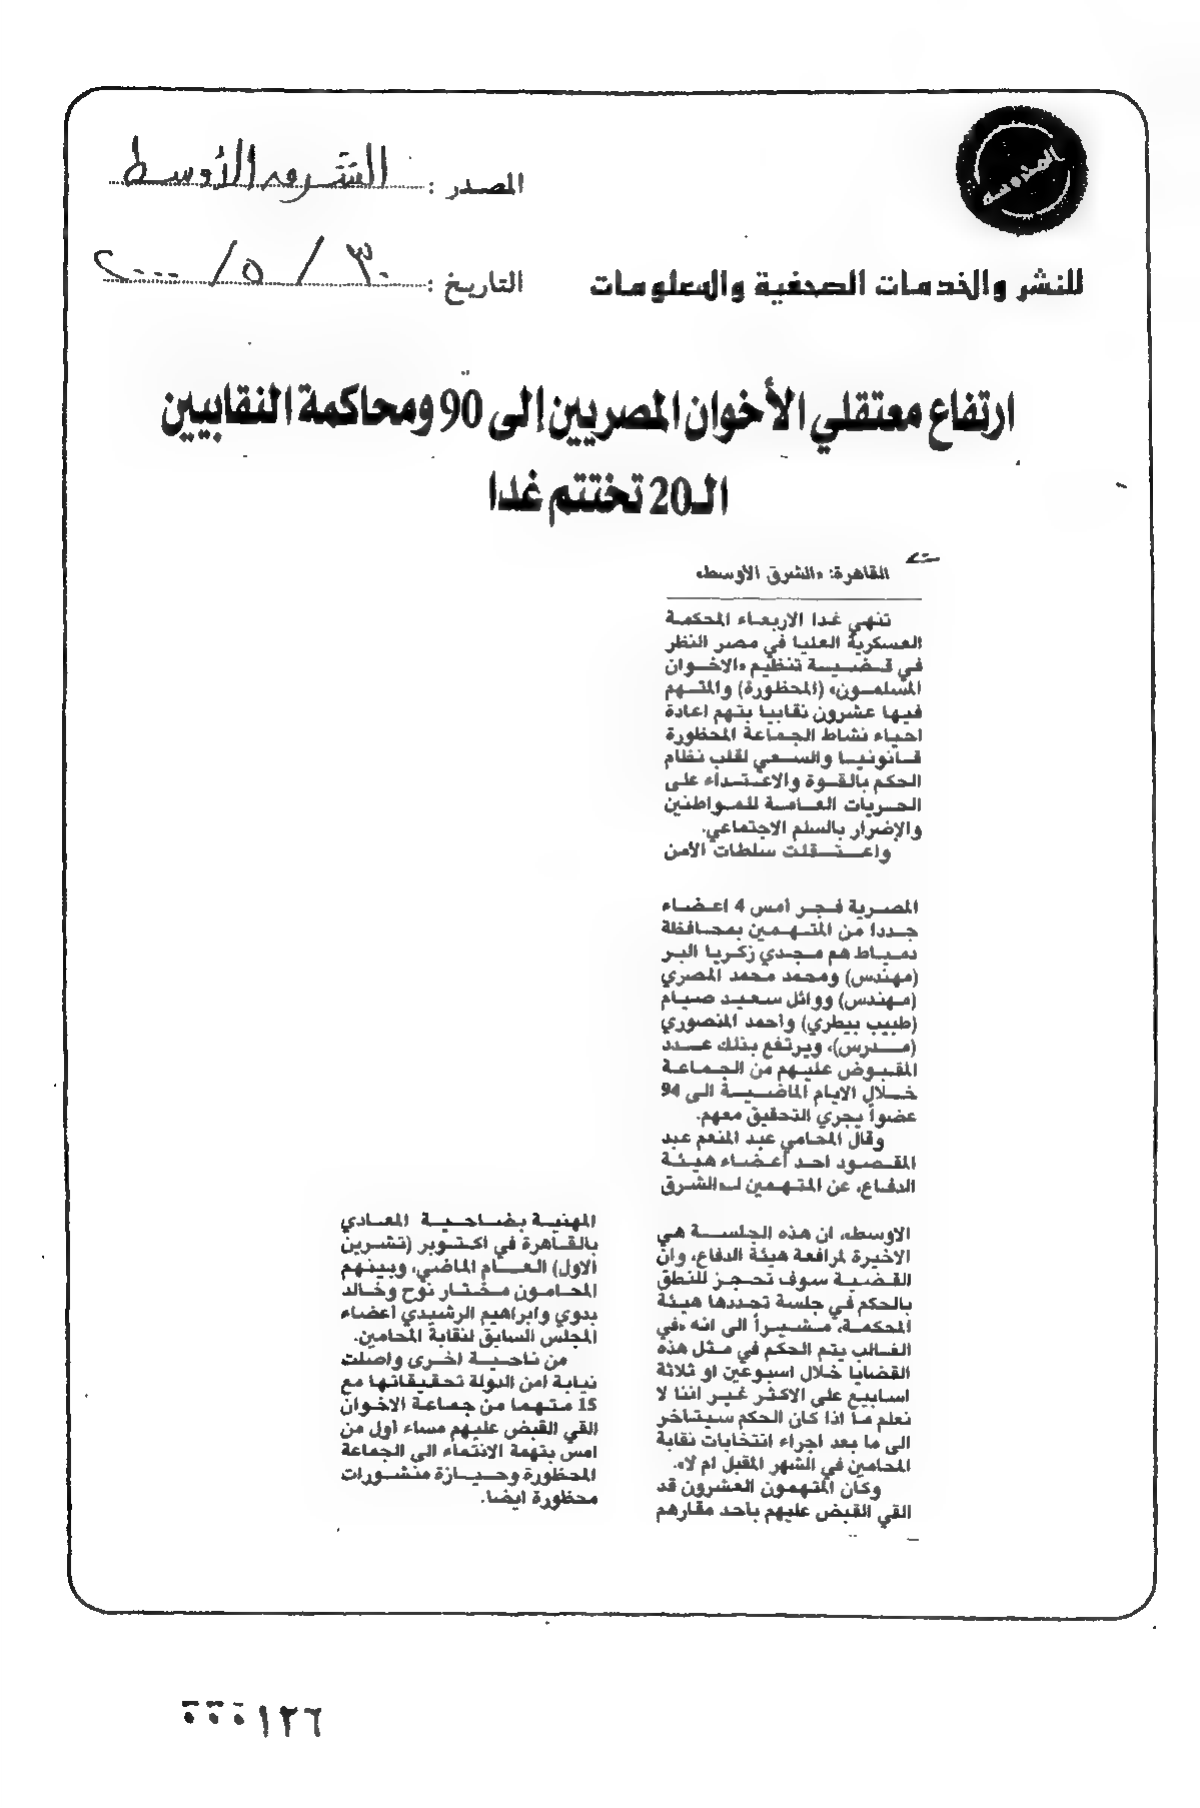 المحروسة
المصدر : الشرق الأوسط
للنشر والخدمات الصحفية والمعلومات
التاريخ : ٣٠ / ٥ / ٢٠٠٠
ارتفاع معتقلي الأخوان المصريين إلى 90 ومحاكمة النقابيين
الـ20 تختتم غدا
القاهرة: «الشرق الأوسط»
تنهي غدا الاربعاء المحكمة
العسكرية العليا في مصر النظر
في قضيسة تنظيم «الاخوان
المسلمون» (المحظورة) والمتهم
فيها عشرون نقابيا بتهم اعادة
احياء نشاط الجماعة المحظورة
قانونيا والسعي لقلب نظام
الحكم بالقوة والاعتداء على
الحريات العامة للمواطنين
والإضرار بالسلم الاجتماعي.
واعتقلت سلطات الأمن
المصرية فجر أمس 4 اعضاء
جددا من المتهمين بمحافظة
دمياط هم مجدي زكريا البر
(مهندس) ومحمد محمد المصري
(مهندس) ووائل سعيد صيام
(طبيب بيطري) واحمد المنصوري
(مدرس)، ويرتفع بذلك عدد
المقبوض عليهم من الجماعة
خلال الايام الماضية الى 94
عضواً يجري التحقيق معهم.
وقال المحامي عبد المنعم عبد
المقصود احد أعضاء هيئة
الدفاع، عن المتهمين لـ«الشرق
الاوسط»، ان هذه الجلسة هي
الاخيرة لمرافعة هيئة الدفاع، وان
القضية سوف تحجز للنطق
بالحكم في جلسة تحددها هيئة
المحكمة، مشيراً الى انه «في
الغالب يتم الحكم في مثل هذه
القضايا خلال اسبوعين او ثلاثة
اسابيع على الاكثر غير اننا لا
نعلم ما اذا كان الحكم سيتأخر
الى ما بعد اجراء انتخابات نقابة
المحامين في الشهر المقبل ام لا».
وكان المتهمون العشرون قد
القي القبض عليهم بأحد مقارهم
المهنية بضاحية المعادي
بالقاهرة في اكتوبر (تشرين
الاول) العام الماضي، وبينهم
المحامون مختار نوح وخالد
بدوي وابراهيم الرشيدي اعضاء
المجلس السابق لنقابة المحامين.
من ناحية اخرى واصلت
نيابة امن الدولة تحقيقاتها مع
15 متهما من جماعة الاخوان
القي القبض عليهم مساء أول من
امس بتهمة الانتماء الى الجماعة
المحظورة وحيازة منشورات
محظورة ايضا.
٠٠٠١٢٦